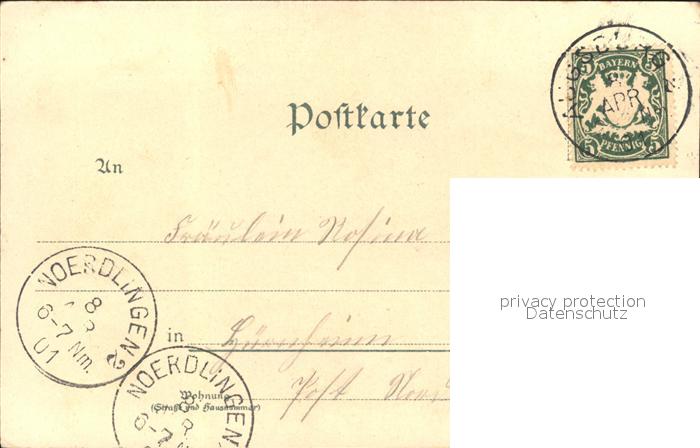 AUGSBURG
APR
5 BAYERN 5
5 PFENNIG 5
Postkarte
An
Fräulein Rosina
privacy protection
Datenschutz
NOERDLINGEN 2
8
6-7 Nm.
01
in Hürnheim
Post
NOERDLINGEN
8
6-7
Wohnung
(Straße und Hausnummer)